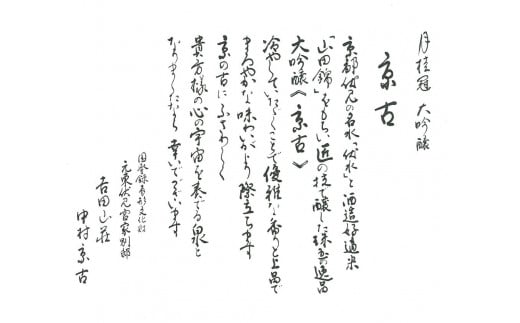 月桂冠 大吟醸
京古
京都伏見の名水「伏水」と酒造好適米
「山田錦」をもちい、匠の技で醸した珠玉の逸品
大吟醸《京古》
冷やしていただくことで優雅な香りと上品で
まろやかな味わいがより際立ちます
京の古にふさわしく
貴方様の心の宇宙を奏でる泉と
なりましたなら幸いでございます
国登録有形文化財
元東伏見宮家別邸
吉田山荘
中村京古